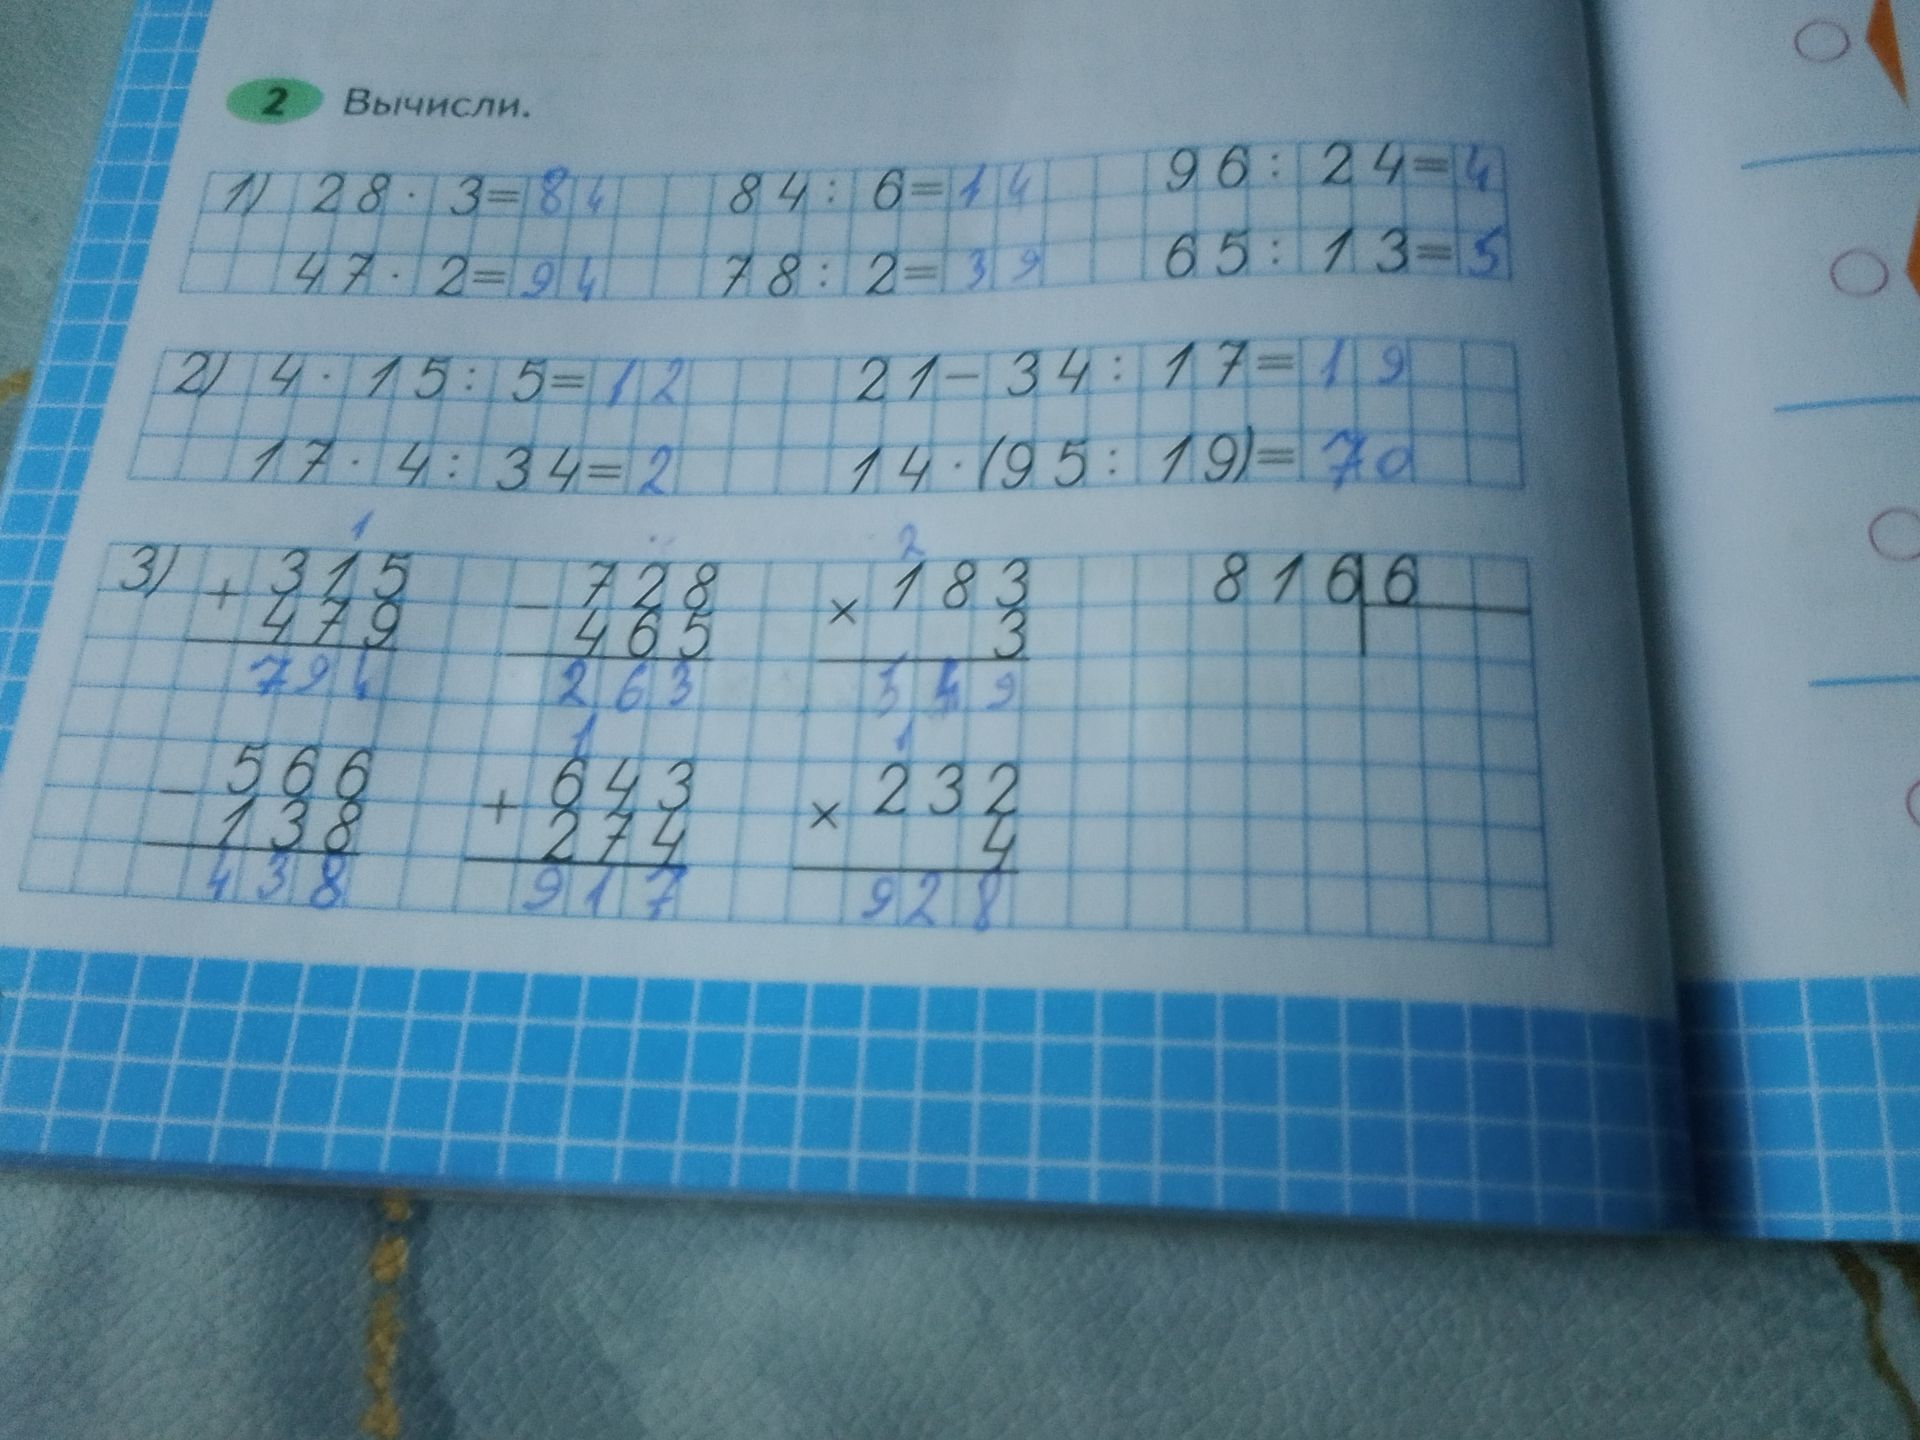 2 Вычисли.
1) 28 · 3= 84 84 : 6= 14 96 : 24= 4
47 · 2= 94 78 : 2= 39 65 : 13= 5
2) 4 · 15 : 5= 12 21 − 34 : 17= 19
17 · 4 : 34= 2 14 · (95 : 19)= 70
1 2
3) + 315 − 728 × 183 816 6
479 465 3
794 263 549
1 1
− 566 + 643 × 232
138 274 4
438 917 928